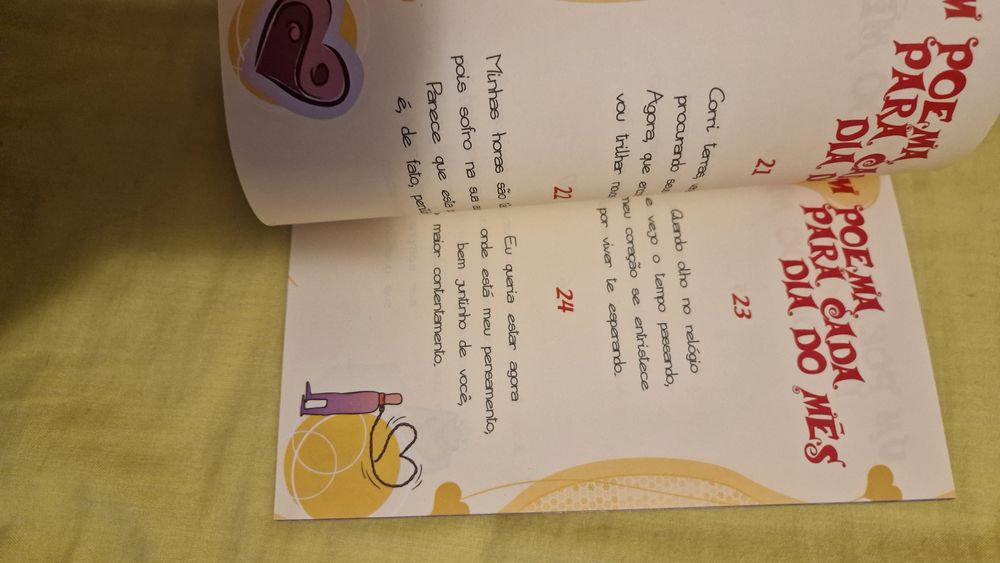 M POEMA
PARA CA
DIA D
21
Corri terras,
procurando
Agora, que
vou trilhar
22
Minhas horas são
pois sofro na sua
Parece que
é, de fato,
POEMA
PARA CADA
DIA DO MÊS
23
Quando olho no relógio
e vejo o tempo passando,
meu coração se entristece
por viver te esperando.
24
Eu queria estar agora
onde está meu pensamento,
bem juntinho de você,
maior contentamento.